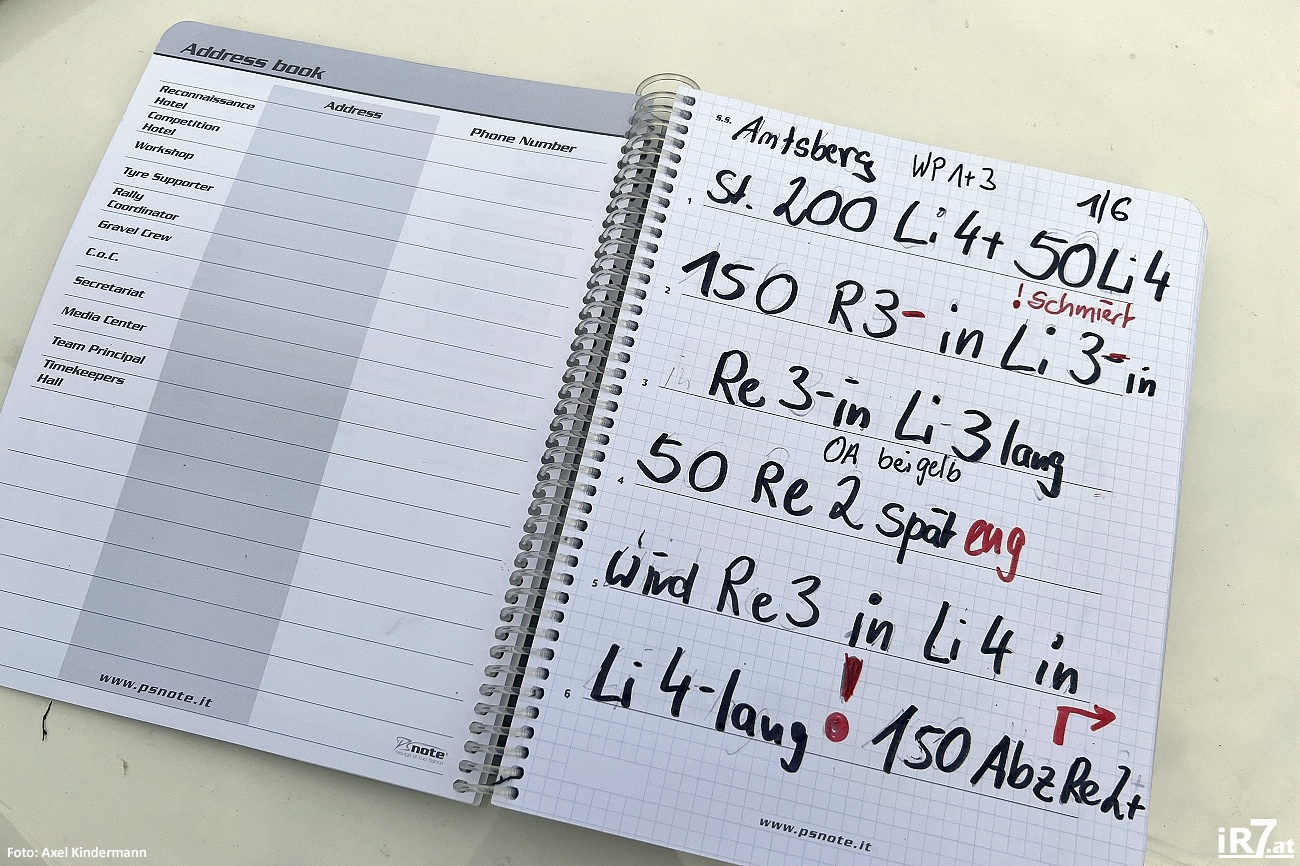 Address book
Address
Phone Number
Reconnaissance
Hotel
Competition
Hotel
Workshop
Tyre Supporter
Rally
Coordinator
Gravel Crew
C.o.C.
Secretariat
Media Center
Team Principal
Timekeepers
Hall
www.psnote.it
note
S.S. Amtsberg WP 1+3 1/6
1 St. 200 Li 4+ 50 Li 4
! schmiert
2 150 R3- in Li 3- in
3 in Re 3- in Li 3 lang
OA bei gelb
4 50 Re 2 spät eng
5 wird Re 3 in Li 4 in
6 Li 4- lang ! 150 Abz Re 2+
www.psnote.it
Foto: Axel Kindermann
iR7.at